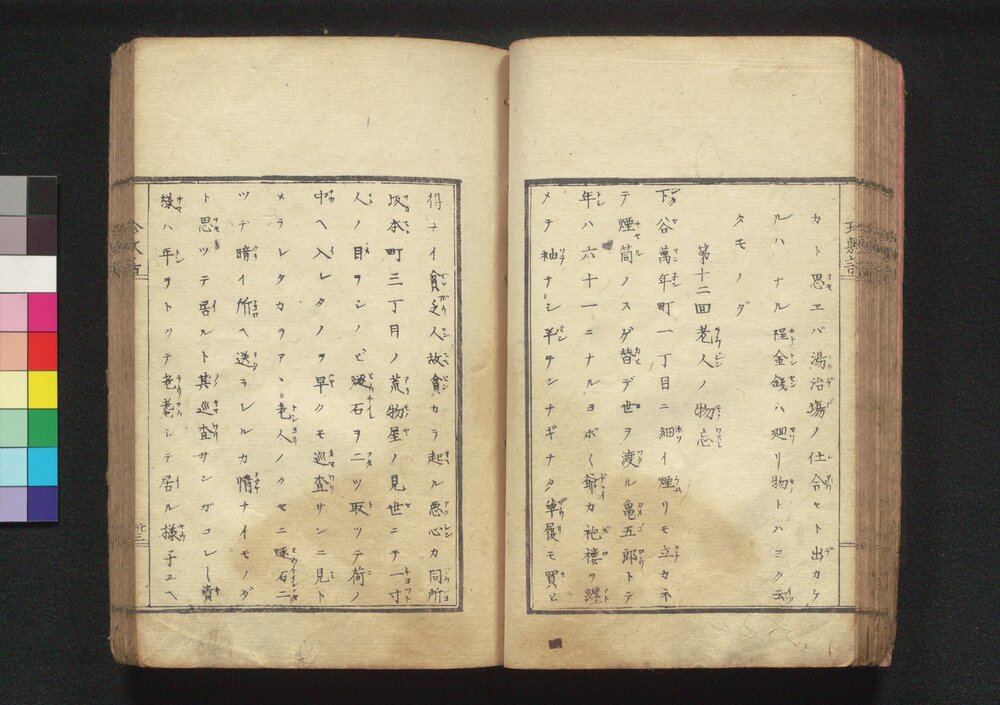 カト思エバ湯治塲ノ仕合セト出カケ
ルハナル程金銭ハ廻リ物トハヨク云
タモノダ
第十二回老人ノ物忘
下谷萬年町一丁目ニ細イ煙リモ立カネ
テ煙筒ノスゲ替デ世ヲ渡ル亀五郎トテ
年ハ六十一ニナルヨボ〱爺カ袍褸ヲ纒
メテ袖ナシ半サンナギナタ草履モ買ヒ
得ナイ貧乏人故貧カラ起ル悪心カ同所
坂本町三丁目ノ荒物屋ノ見世ニテ一寸
人ノ目ヲシノビ燧石ヲ二ツ取ツテ荷ノ
中ヘ入レタノヲ早クモ巡査サンニ見ト
メラレタカヲアヽ老人ノクセニ燧石ニ
ツデ暗イ所ヘ送ラレルカ情ナイモノダ
ト思ツテ居ルト其巡査サンガコレ〱貴
様ハ年ヲトツテ老耄シテ居ル様子ユヘ